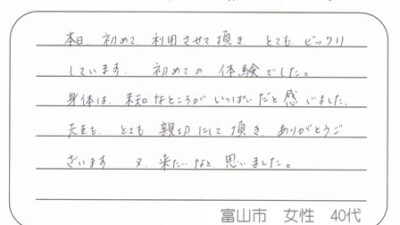 本日、初めて、利用させて頂き、とても ビックリ
しています。 初めての 体験でした。
身体は、未知なところが いっぱいだと感じました。
先生も、とても 親切にして頂き、ありがとうご
ざいます 又、来たいなと 思いました。
富山市 女性 40代